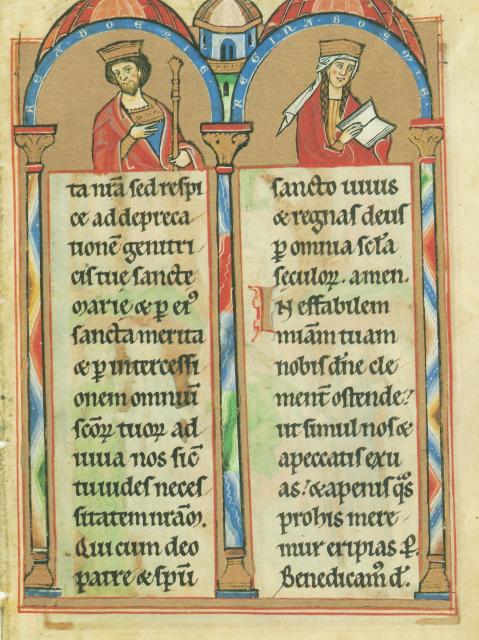 REX BOEMIE
REGINA BOEMIE
ta nr̄a sed respi
ce ad depreca
tionē genitri
cis tue sancte
marie & ꝑ eiꝰ
sancta merita
& ꝑ intercessi
onem omniū
scōꝝ tuoꝝ ad
iuua nos sic̄
tu uides neces
sitatem nr̄am.
Qui cum deo
patre & spū
sancto uiuis
& regnas deus
ꝑ omnia sc̄la
seculoꝝ. amen.
IN effabilem
miām tuam
nobis dn̄e cle
ment̄ ostende:
ut simul nos &
a peccatis exu
as: & a penis q̄s
pro his mere
mur eripias ꝑ.
Benedicamꝰ d̄.